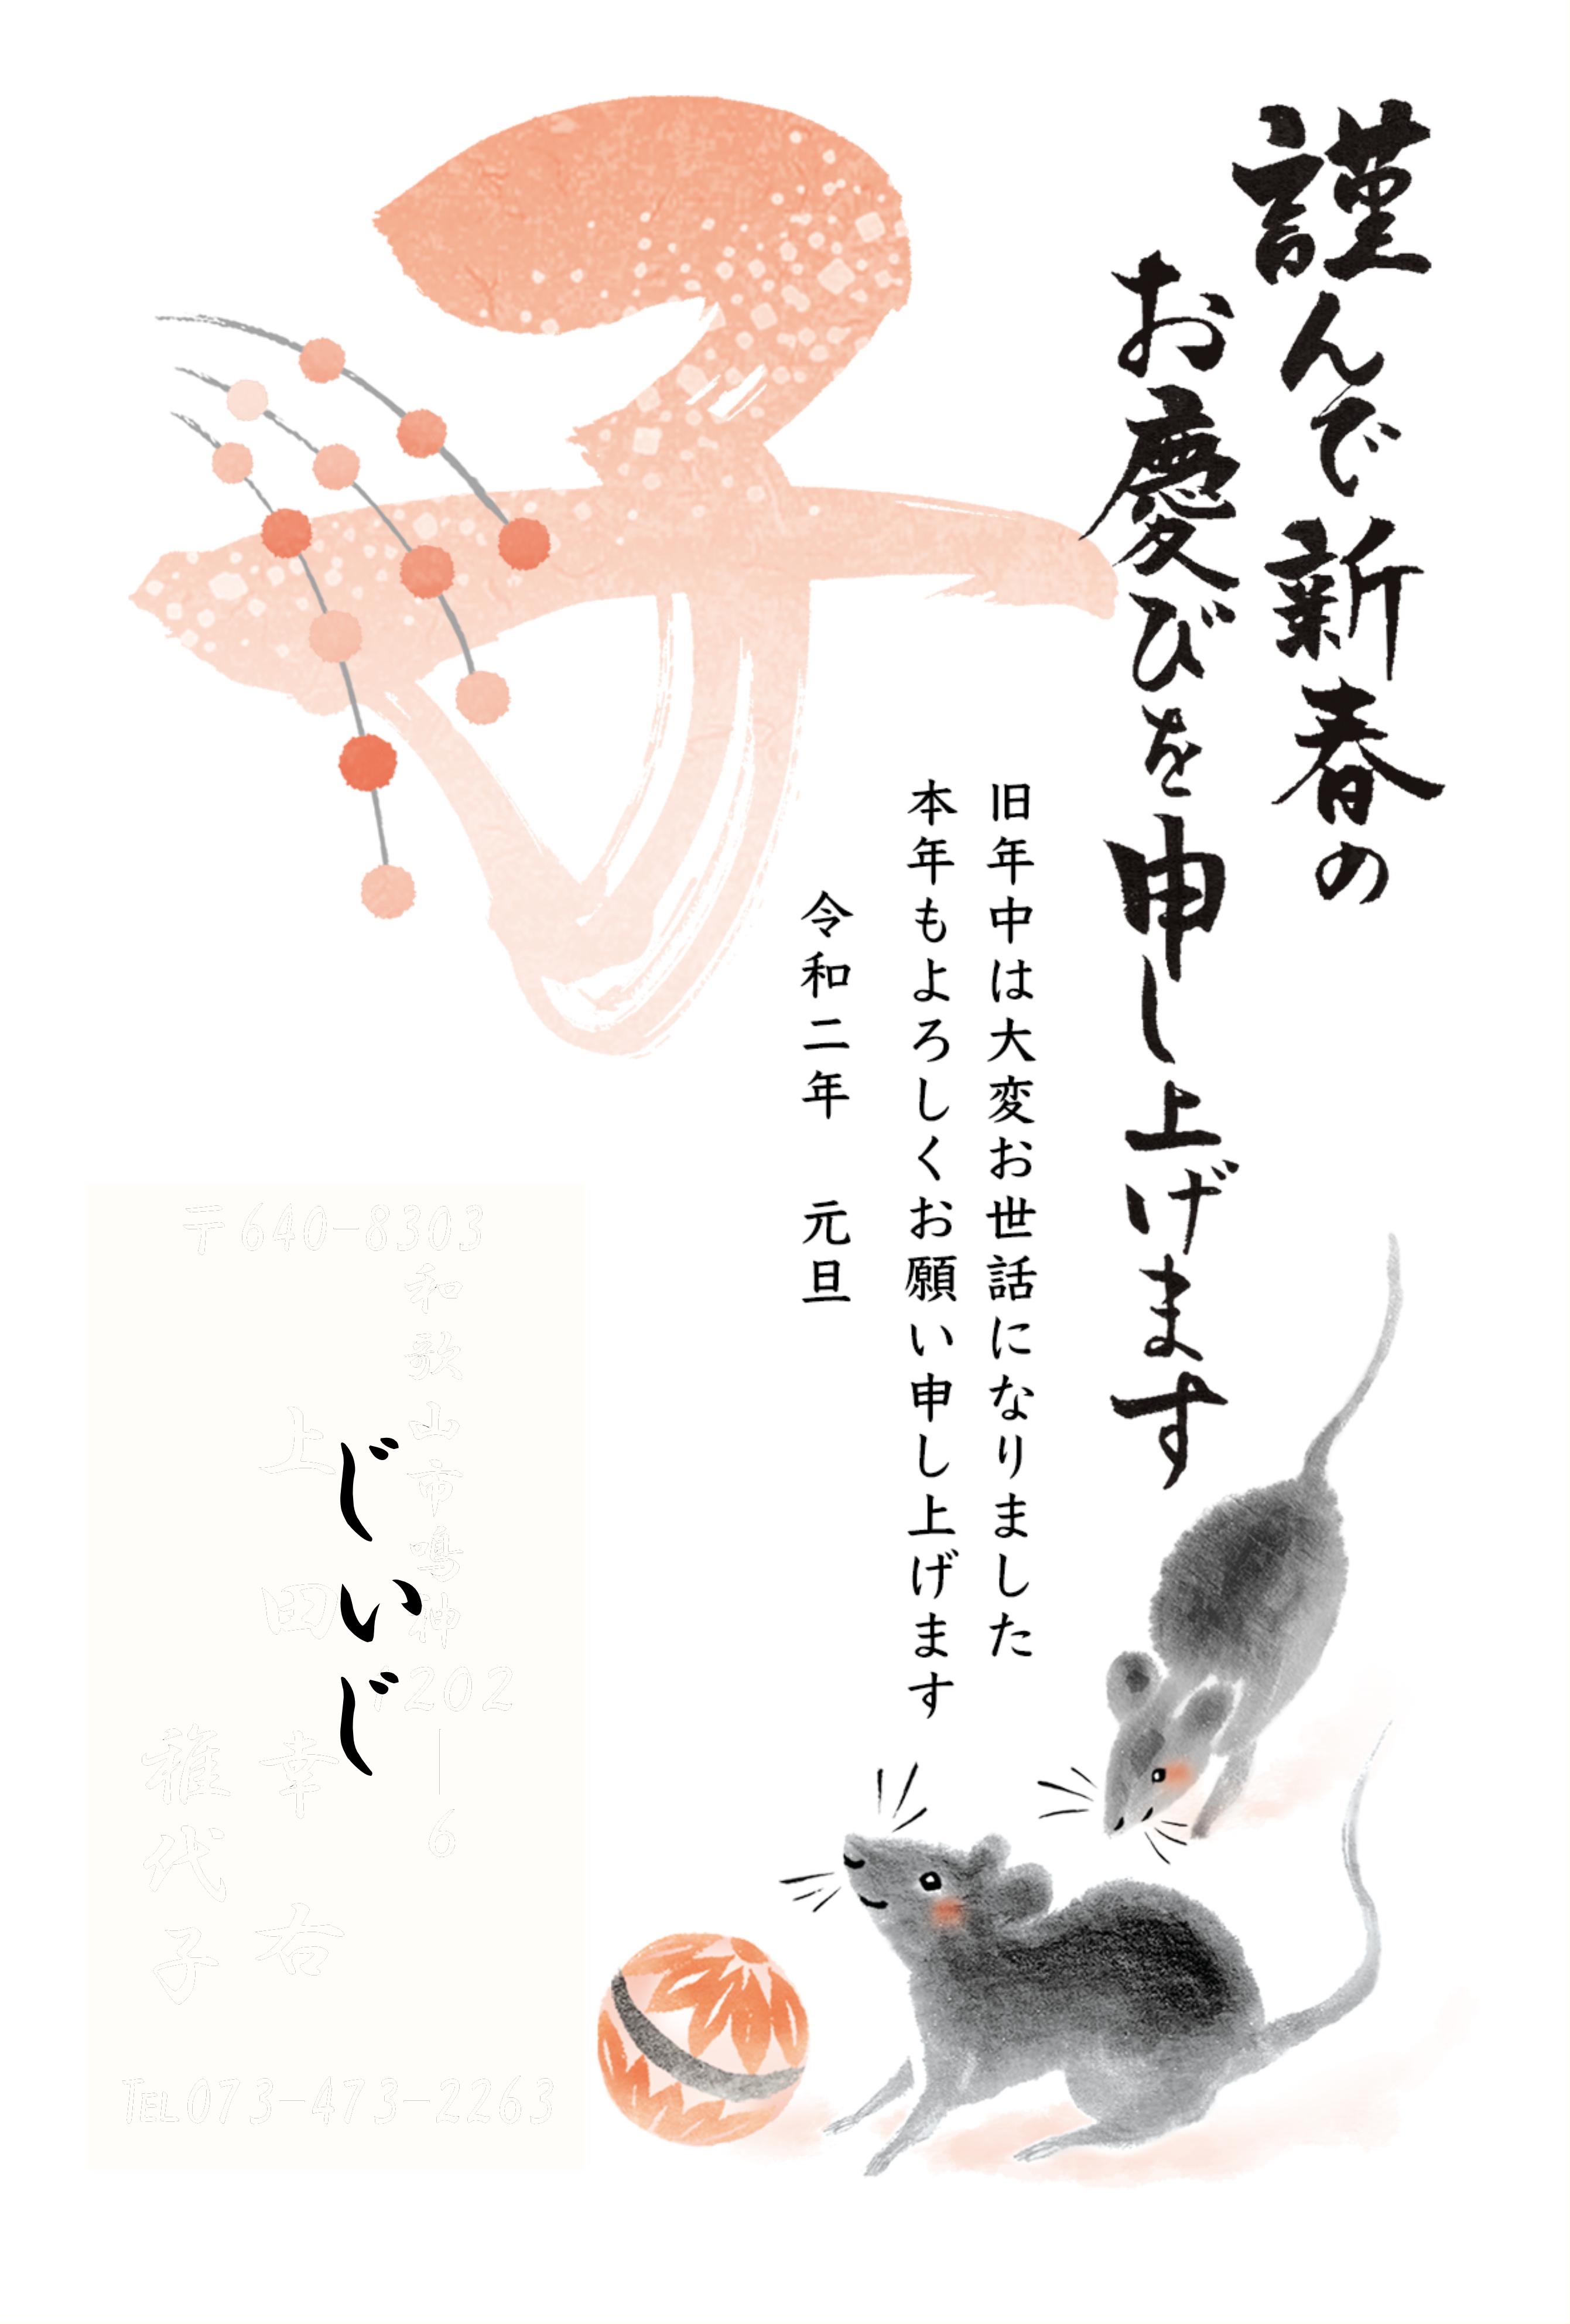 謹んで新春の
お慶びを申し上げます
旧年中は大変お世話になりました
本年もよろしくお願い申し上げます
令和二年　元旦
子
〒640-8303
和歌山市鳴神
202-6
上田幸右
雅代子
じいじ
TEL073-473-2263